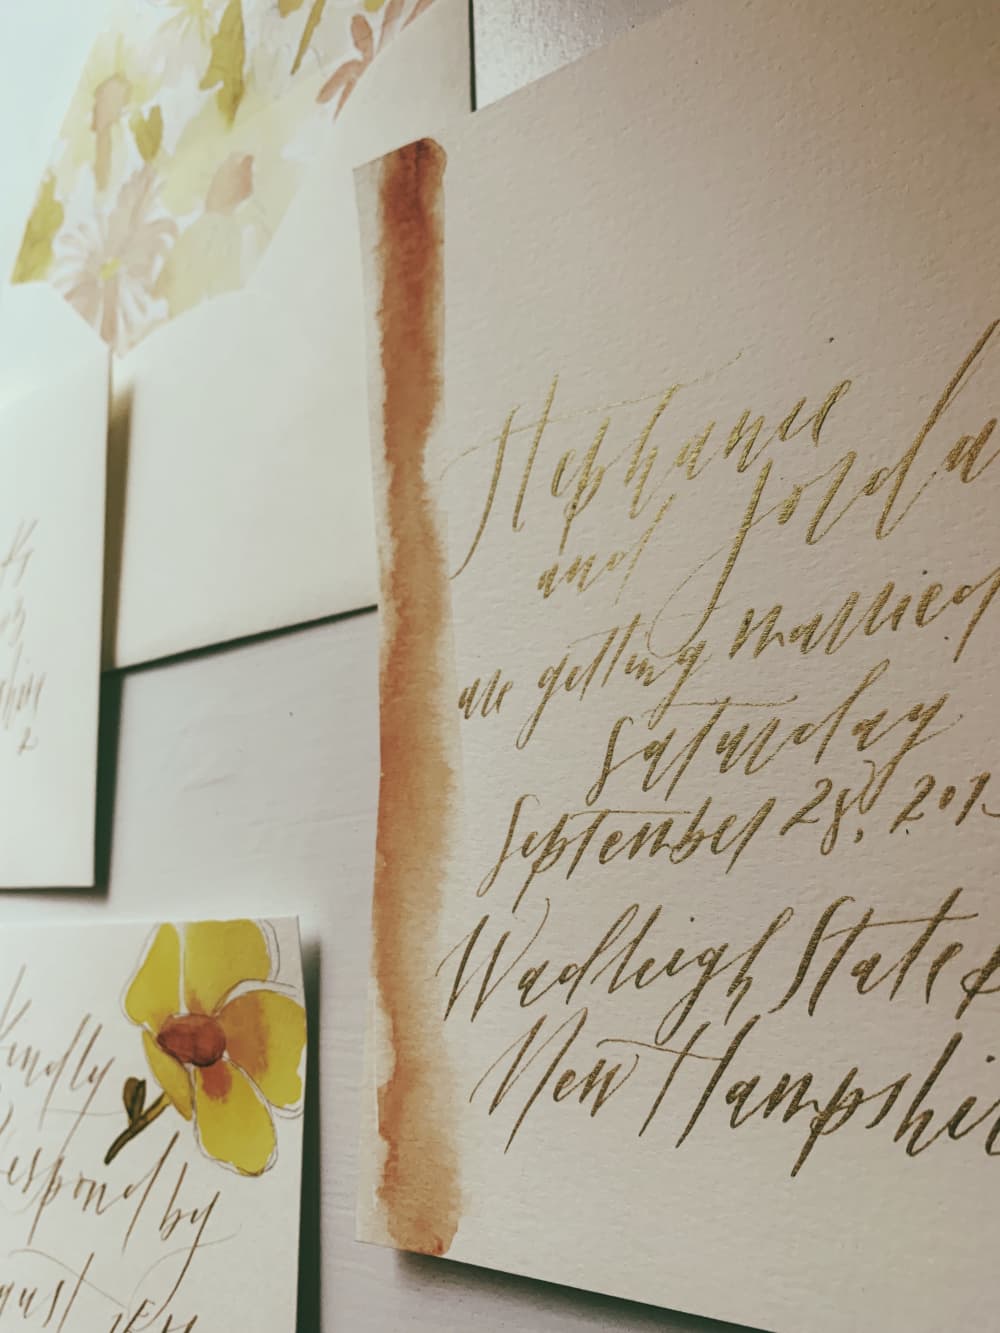 Stephanie
and Jorda
are getting married
Saturday
September 28, 201
Wadleigh State P
New Hampshir
Kindly
Respond by